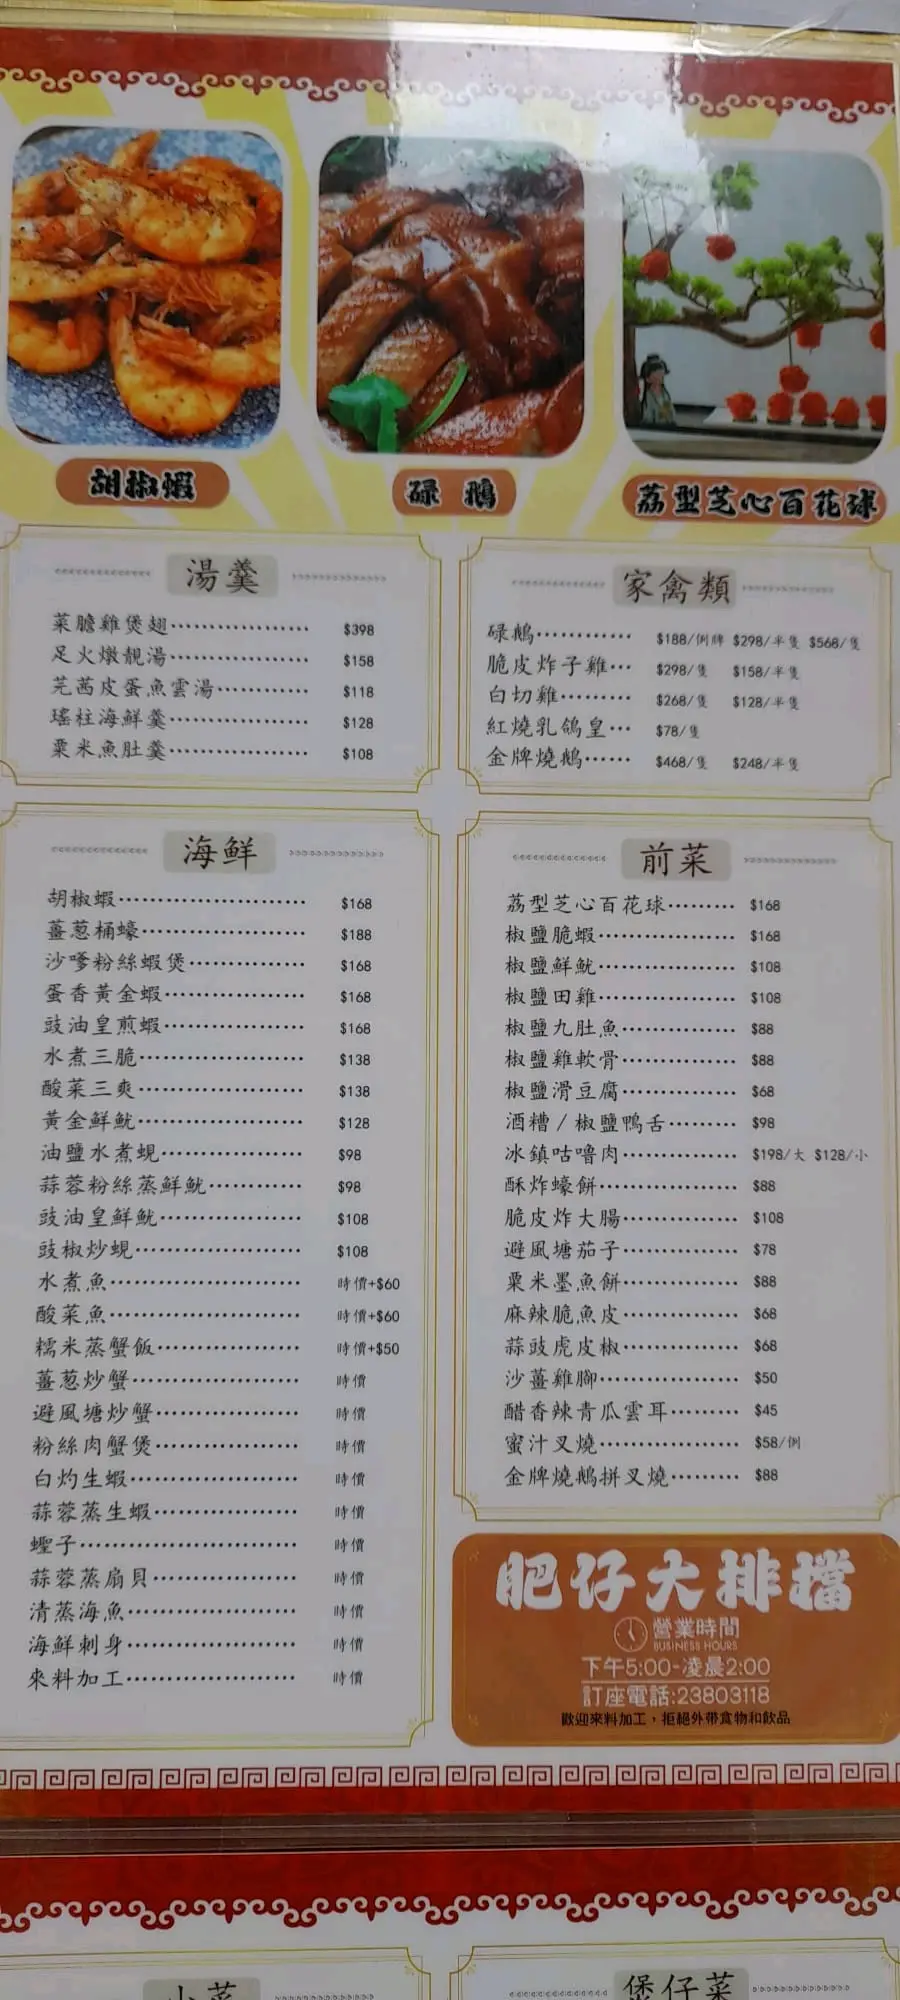 胡椒蝦
碌鵝
荔型芝心百花球
湯羹
菜膽雞煲翅 $398
足火燉靚湯 $158
芫茜皮蛋魚雲湯 $118
瑤柱海鮮羹 $128
粟米魚肚羹 $108
家禽類
碌鵝 $188/例牌 $298/半隻 $568/隻
脆皮炸子雞 $298/隻 $158/半隻
白切雞 $268/隻 $128/半隻
紅燒乳鴿皇 $78/隻
金牌燒鵝 $468/隻 $248/半隻
海鮮
胡椒蝦 $168
薑葱桶蠔 $188
沙嗲粉絲蝦煲 $168
蛋香黃金蝦 $168
豉油皇煎蝦 $168
水煮三脆 $138
酸菜三爽 $138
黃金鮮魷 $128
油鹽水煮蜆 $98
蒜蓉粉絲蒸鮮魷 $98
豉油皇鮮魷 $108
豉椒炒蜆 $108
水煮魚 時價+$60
酸菜魚 時價+$60
糯米蒸蟹飯 時價+$50
薑葱炒蟹 時價
避風塘炒蟹 時價
粉絲肉蟹煲 時價
白灼生蝦 時價
蒜蓉蒸生蝦 時價
蟶子 時價
蒜蓉蒸扇貝 時價
清蒸海魚 時價
海鮮刺身 時價
來料加工 時價
前菜
荔型芝心百花球 $168
椒鹽脆蝦 $168
椒鹽鮮魷 $108
椒鹽田雞 $108
椒鹽九肚魚 $88
椒鹽雞軟骨 $88
椒鹽滑豆腐 $68
酒糟/椒鹽鴨舌 $98
冰鎮咕嚕肉 $198/大 $128/小
酥炸蠔餅 $88
脆皮炸大腸 $108
避風塘茄子 $78
粟米墨魚餅 $88
麻辣脆魚皮 $68
蒜豉虎皮椒 $68
沙薑雞腳 $50
醋香辣青瓜雲耳 $45
蜜汁叉燒 $58/例
金牌燒鵝拼叉燒 $88
肥仔大排擋
營業時間
BUSINESS HOURS
下午5:00-凌晨2:00
訂座電話:23803118
歡迎來料加工，拒絕外帶食物和飲品
小菜
煲仔菜